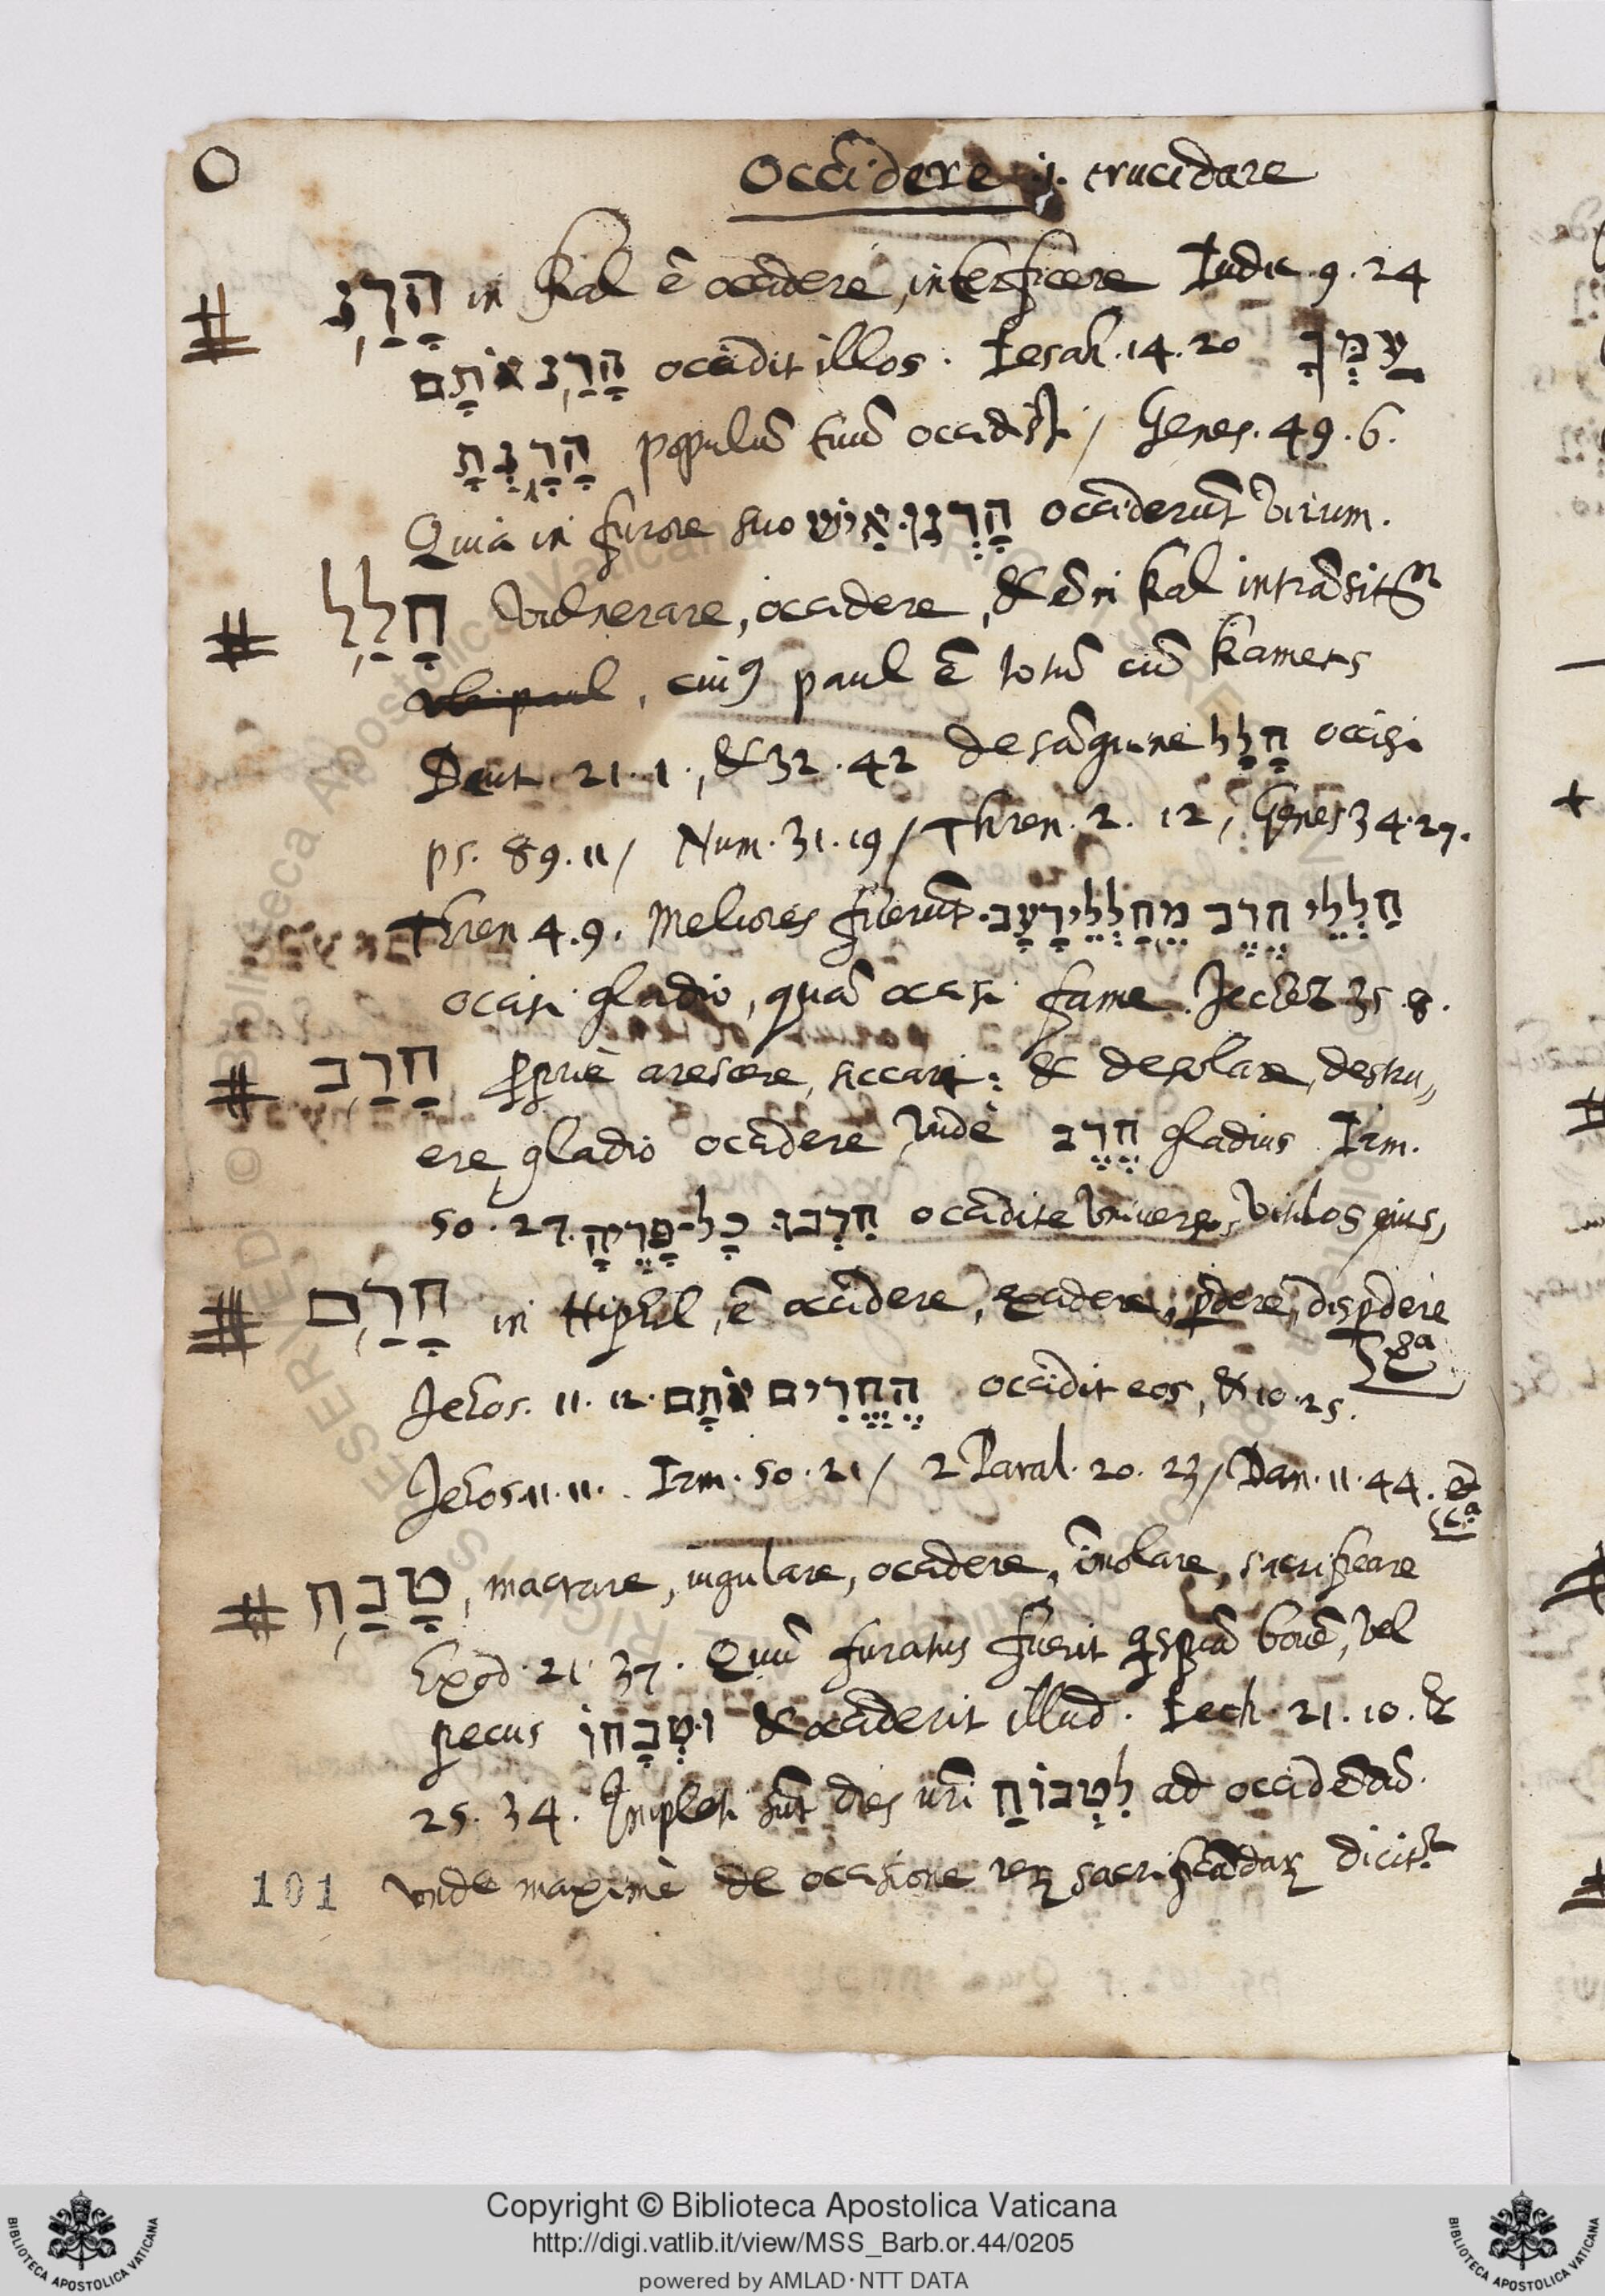 O
Occidere .i. trucidare
# הָרַג in Kal ē occidere, interficere Iudic. 9. 24
הָרַג אוֹתָם occidit illos. Iesah. 14. 20 עַמְּךָ
הָרָגְתָּ populū tuū occidisti / Genes. 49. 6.
Quia in furore suo הָרְגוּ אִישׁ occiderūt virum.
# חָלַל vulnerare, occidere, & ē in Kal
, cuiꝰ paul ē totū cū Kamets
Deut. 21. 1., & 32. 42 de sāguine חָלָל occisi
ps. 89. 11 / Num. 31. 19 / Thren. 2. 12, Genes 34. 27.
Thren 4. 9. Meliores fuerūt חַלְלֵי חֶרֶב מֵחַלְלֵי רָעָב
occisi gladio, quā occisi fame. Jechez 35. 8.
# חָרַב ꝓpriè arescere, siccari; & desolare, destru„
ere, gladio occidere Vnde חֶרֶב gladius Irm.
50. 27. חִרְבוּ כָּל־פָּרֶיהָ occidite Vniversos vitulos eius,
# חָרַם in Hiphil, ē occidere, excidere, ꝑdere, disꝑdere
Jehos. 11. 12. הֶחֱרִים אוֹתָם occidit eos, & 10. 25.
Jehos. 11. 11. Irm. 50. 21 / 2 Paral. 20. 23 / Dan. 11. 44. &
# טָבַח, mactare, iugulare, occidere, īmolare, sacrificare
Exod. 21 37. Quū furatus fuerit qspiā bouē, vel
pecus וּטְבָחוֹ & occiderit illud. Iech 21. 10. &
25. 34. Impleti sūt dies vrī לִטְבוֹחַ ad occidēdū.
101 vnde maximè de occisione rerꝝ sacrificādarꝝ dicitr
Copyright © Biblioteca Apostolica Vaticana
http://digi.vatlib.it/view/MSS_Barb.or.44/0205
powered by AMLAD · NTT DATA
BIBLIOTECA APOSTOLICA VATICANA
BIBLIOTECA APOSTOLICA VATICANA